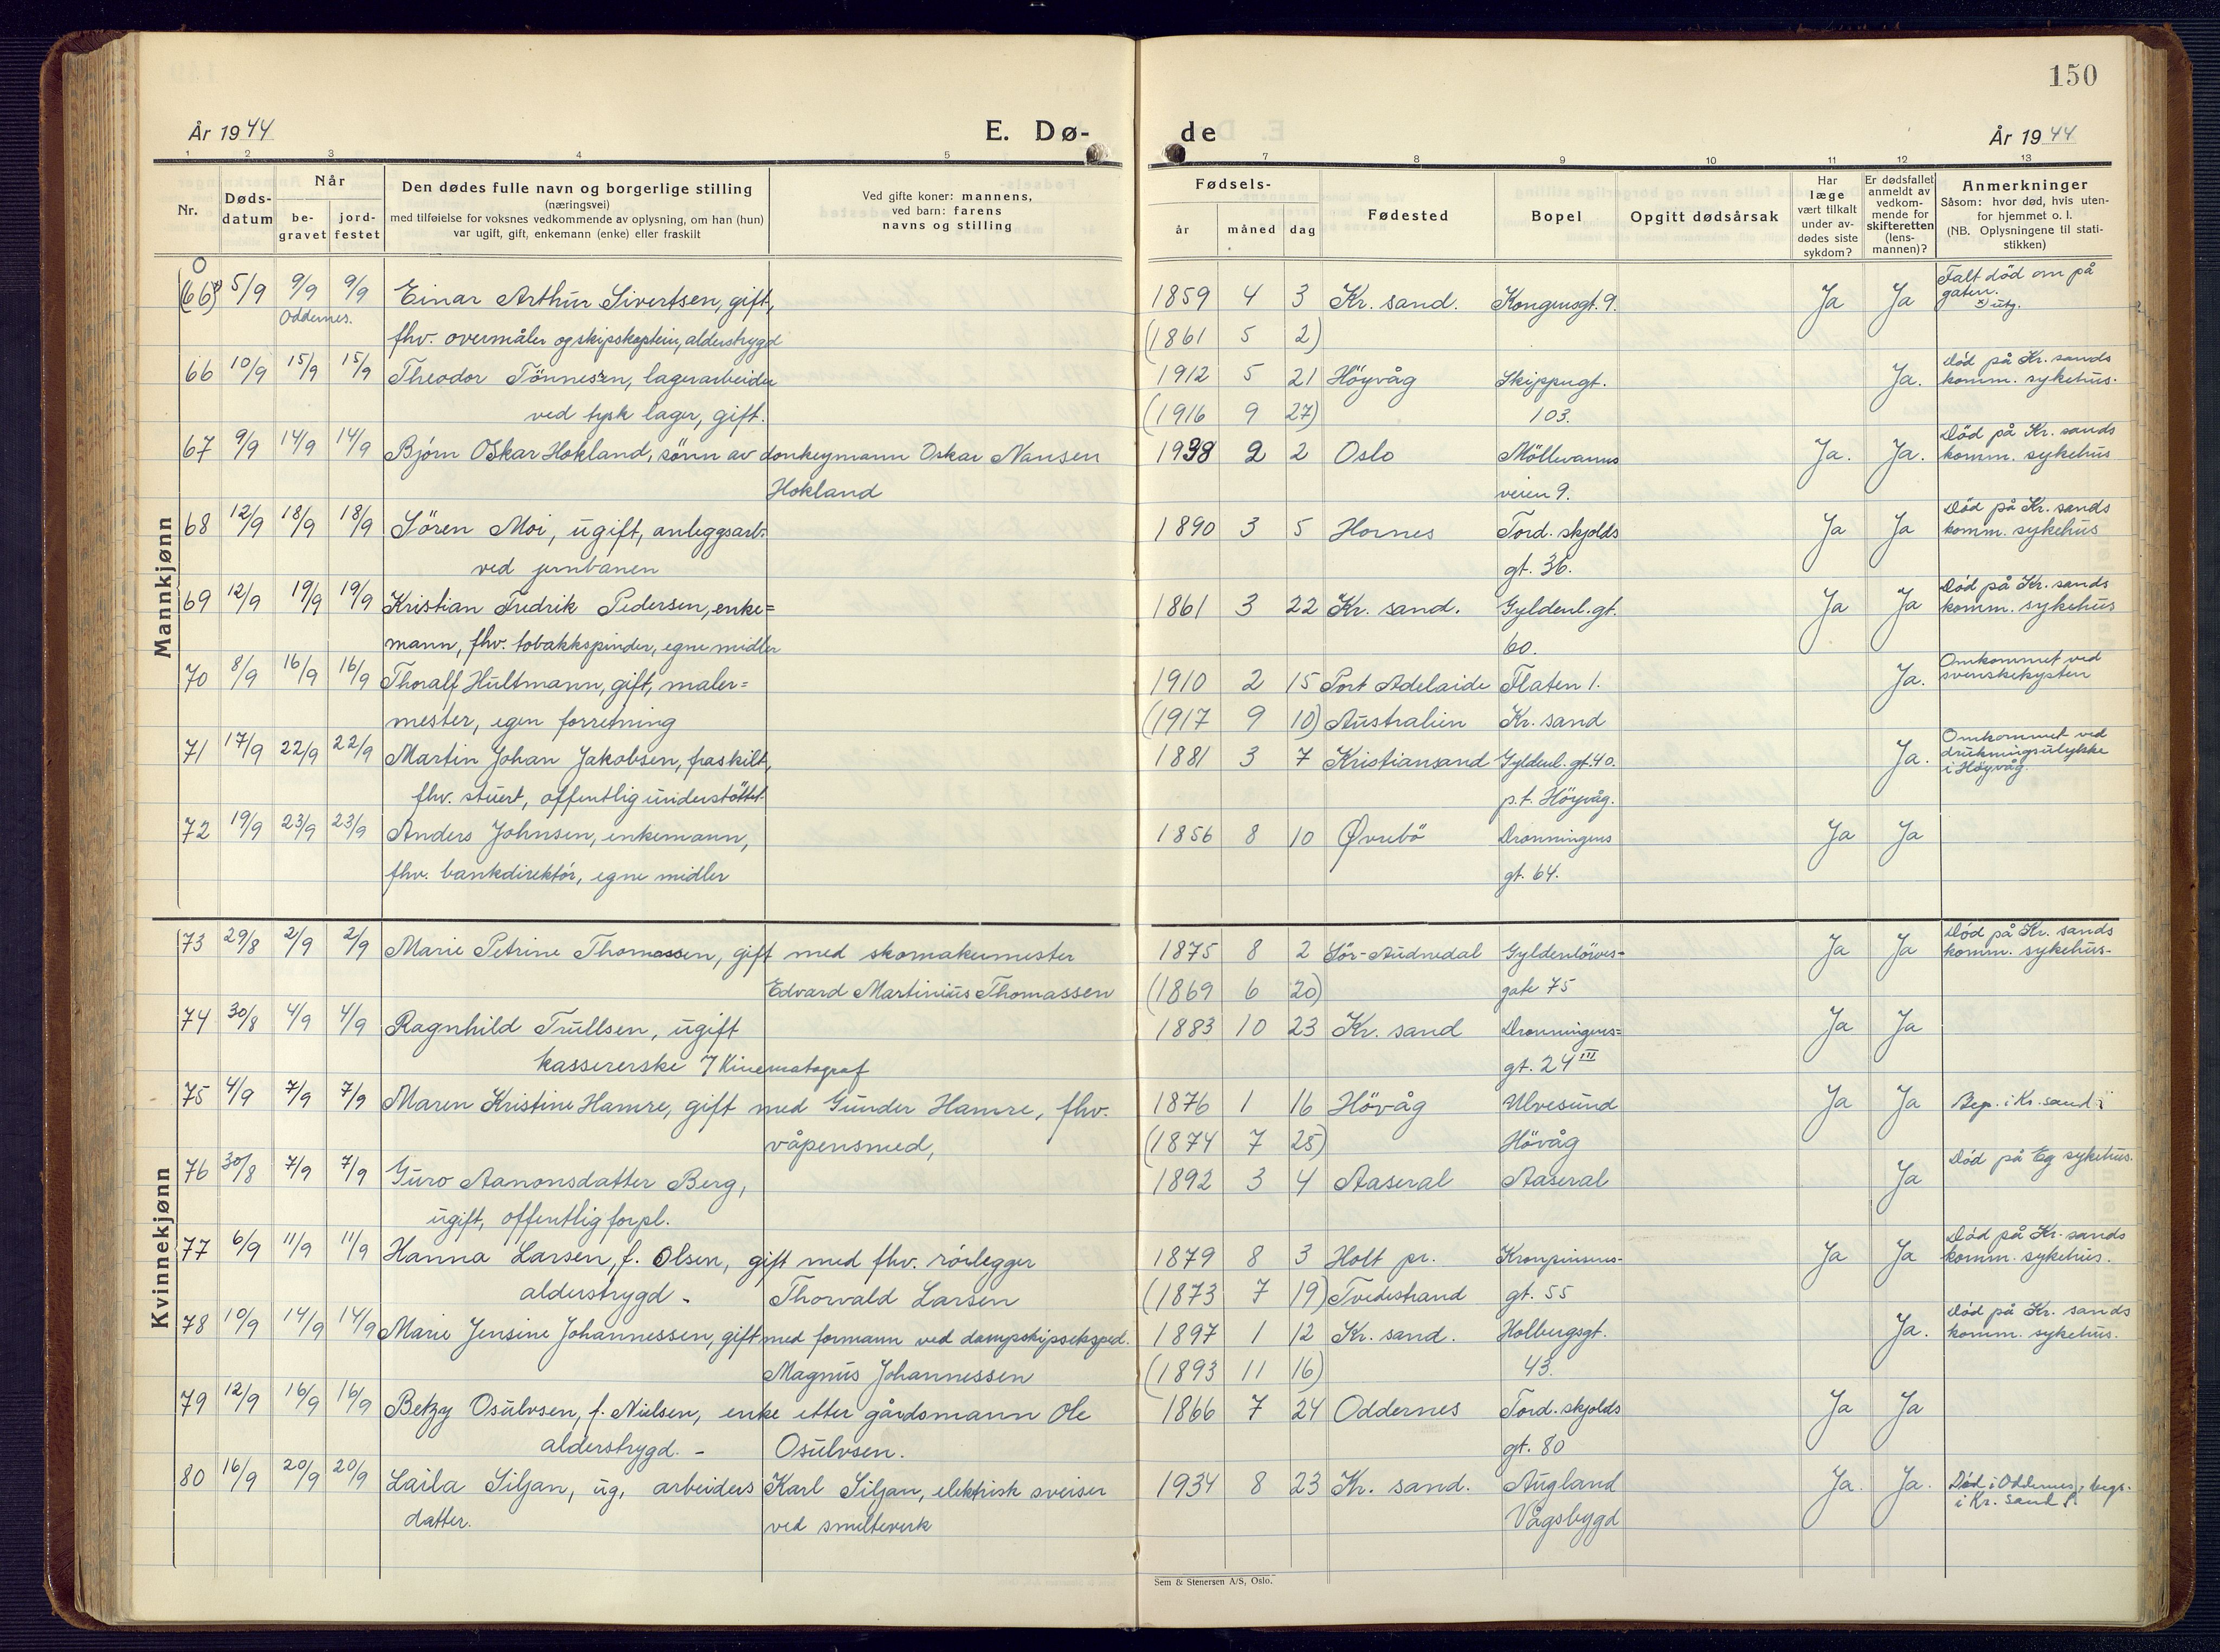 150
År 1944
E. Dø-
de
År 1944
1 2 3 4 5 7 8 9 10 11 12 13
Nr.
Døds-
datum
Når
be-
gravet
jord-
festet
Den dødes fulle navn og borgerlige stilling
(næringsvei)
med tilføielse for voksnes vedkommende av oplysning, om han (hun)
var ugift, gift, enkemann (enke) eller fraskilt
Ved gifte koner: mannens,
ved barn: farens
navns og stilling
Fødsels-
år måned dag
Fødested
Bopel
Opgitt dødsårsak
Har
læge
vært tilkalt
under av-
dødes siste
sykdom?
Er dødsfallet
anmeldt av
vedkom-
mende for
skifteretten
(lens-
mannen)?
Anmerkninger
Såsom: hvor død, hvis uten-
for hjemmet o. l.
(NB. Oplysningene til stati-
stikken)
Mannkjønn
(66) 5/9 9/9 9/9 Einar Arthur Sivertsen, gift, 1859 4 3 Kr. sand. Kongensgt. 9. Ja Ja Falt död om på
gaten.
utg.
Oddernes.
fhv. overmåler og skipskaptein, alderstrygd (1861 5 2)
66 10/9 15/9 15/9 Theodor Tönnesen, lagerarbeider 1912 5 21 Höyvåg Skippergt. Ja. Död på Kr. sands
komm. sykehus.
ved tysk lager, gift. (1916 9 27) 103.
67 9/9 14/9 14/9 Bjørn Oskar Hokland, sönn av donkeymann Oskar Nansen 1938 2 2 Oslo Möllevanns Ja. Ja. Död på Kr. sands
komm. sykehus
Hokland veien 9.
68 12/9 18/9 18/9 Sören Moi, ugift, anleggsarb. 1890 3 5 Hornes Tord. skjolds Ja Ja Död på Kr. sands
komm. sykehus
ved jernbanen gt. 36.
69 12/9 19/9 19/9 Kristian Fredrik Pedersen, enke= 1861 3 22 Kr. sand. Gyldenl. gt. Ja Ja Död på Kr. sands
komm. sykehus
mann, fhv. tobakkspinder, egne midler 60.
70 8/9 16/9 16/9 Thoralf Hultmann, gift, maler= 1910 2 15 Port Adelaide Flaten 1. Ja. Omkommet ved
svenskekysten
mester, egen forretning (1917 9 10) Australien Kr. sand
71 17/9 22/9 22/9 Martin Johan Jakobsen, fraskilt, 1881 3 7 Kristiansand Gyldenl. gt. 40. Ja. Omkommet ved
drukningsulykke
i Höyvåg.
fhv. stuert, offentlig understöttet. p.t. Höyvåg.
72 19/9 23/9 23/9 Anders Johnsen, enkemann, 1856 8 10 Øvrebö Dronningens Ja Ja
fhv. bankdirektör, egne midler gt. 64.
Kvinnekjønn
73 29/8 2/9 2/9 Marie Petrine Thomassen, gift med skomakermester 1875 8 2 Sör-Audnedal Gyldenlöves- Ja Ja Död på Kr. sands
komm. sykehus-
Edvard Martinius Thomassen (1869 6 20) gate 75
74 30/8 4/9 4/9 Ragnhild Trullsen, ugift 1883 10 23 Kr. sand Dronningens= Ja Ja
kassererske / Kinematograf gt. 24 III
75 4/9 7/9 7/9 Maren Kristine Hamre, gift med Gunder Hamre, fhv. 1876 1 16 Hövåg Ulvesund Ja Ja Beg. i Kr. sand
våpensmed, (1874 7 25) Hövåg
76 30/8 7/9 7/9 Guro Aanonsdatter Berg, 1892 3 4 Aaseral Aaseral Ja Död på Eg sykehus.
ugift, offentlig forpl.
77 6/9 11/9 11/9 Hanna Larsen, f. Olsen, gift med fhv. rörlegger 1879 8 3 Holt pr. Kronprinsens- Ja Ja Död på Kr. sands
komm. sykehus.
alderstrygd - Thorvald Larsen (1873 7 19) Tvedestrand gt. 55
78 10/9 14/9 14/9 Marie Jensine Johannessen, gift med formann ved dampskipseksped. 1897 1 12 Kr. sand. Holbergsgt. Ja. Död på Kr. sands
komm. sykehus.
Magnus Johannessen (1893 11 16) 43.
79 12/9 16/9 16/9 Betzy Osulvsen, f. Nielsen, enke etter gårdsmann Ole 1866 7 24 Oddernes Tord. skjolds Ja Ja
alderstrygd. - Osulvsen. gt. 80
80 16/9 20/9 20/9 Laila Siljan, ug, arbeiders Karl Siljan, elektrisk sveiser 1934 8 23 Kr. sand. Augland Ja. Ja. Död i Oddernes, begr.
i Kr. sand
datter. ved smelteverk Vågsbygd
Sem & Stenersen A/S, Oslo.